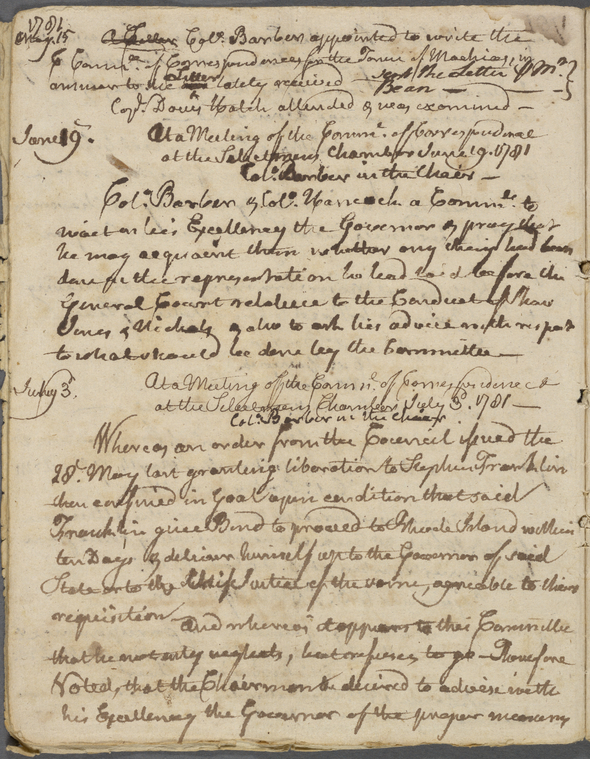 1781
May. 15
A Letter Colo. Barber appointed to write the
Comm.ee of Correspondence for the Town of Machias, in
answer to the Letter lately received — sent the Letter by Mr.
Bean —
Cap.t Davis Hatch attended & was examined —
June 19.
At a Meeting of the Comm.ee of Correspondence
at the Selectmens Chamber June 19. 1781
Colo. Barber in the Chair —
Colo. Barber & Colo. Hancock a Comm.ee to
wait on his Excellency the Governor & pray that
he may acquaint them whether any thing had been
done in the representation he had laid before the
General Court relative to the Conduct of Shaw
Jones & Nichols & also to ask his advice with respect
to what should be done by the Committee —
July 3d.
At a Meeting of the Comm.ee of Correspondence
at the Selectmens Chamber July 3d. 1781 —
Colo. Barber in the Chair
Whereas an order from the Council issued the
28th. May last granting liberation to Stephen Franklin
then confined in Goal upon condition that said
Franklin give Bond to proceed to Rhode Island within
ten Days & deliver himself up to the Governor of said
State or to the Chief Justice of the same, agreable to their
requisition
And whereas it appears to this Committee
that he not only neglects, but refuses to go — Therefore
Voted, that the Chairman be desired to advise with
his Excellency the Governor of the proper measures